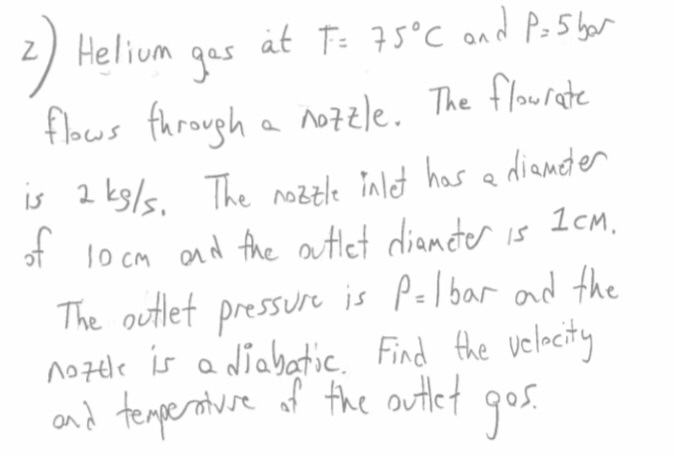 2) Helium gas at T= 75°C and P=5 bar
flows through a nozzle. The flowrate
is 2 kg/s. The nozzle inlet has a diameter
of 10 cm and the outlet diameter is 1cm.
The outlet pressure is P=1bar and the
nozzle is adiabatic. Find the velocity
and temperature of the outlet gas.